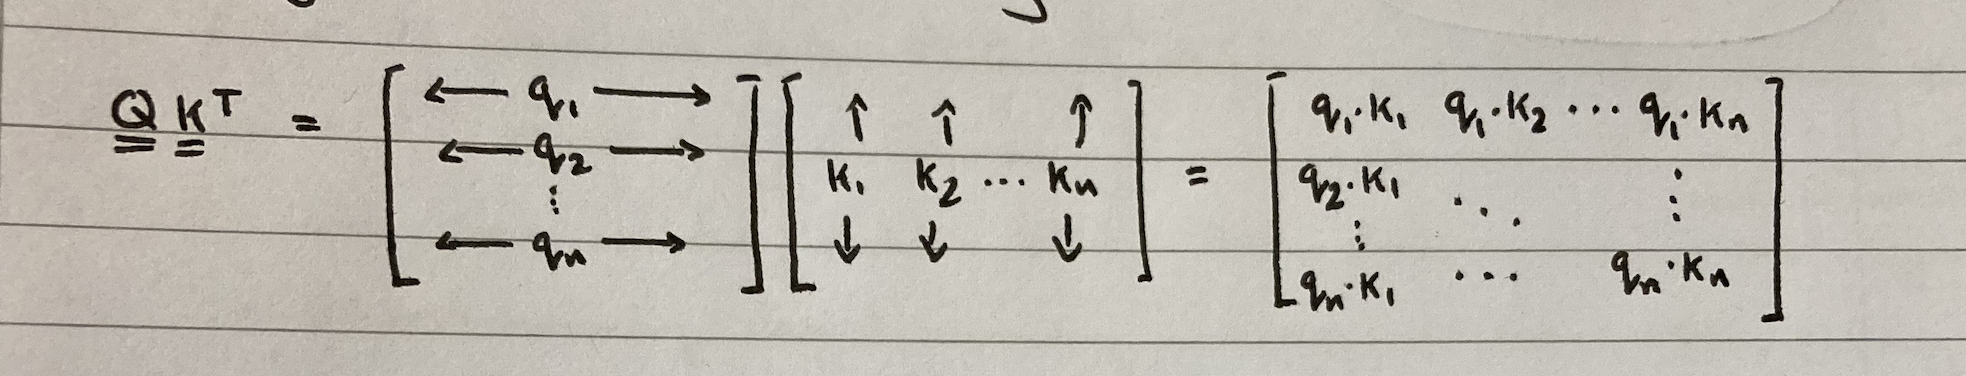 Q K^T = [ ← q₁ → ; ← q₂ → ; ⋮ ; ← qₙ → ] [ ↑ ↑ ↑ ; k₁ k₂ ⋯ kₙ ; ↓ ↓ ↓ ] = [ q₁·k₁ q₁·k₂ ⋯ q₁·kₙ ; q₂·k₁ ⋱ ⋮ ; ⋮ ; qₙ·k₁ ⋯ qₙ·kₙ ]